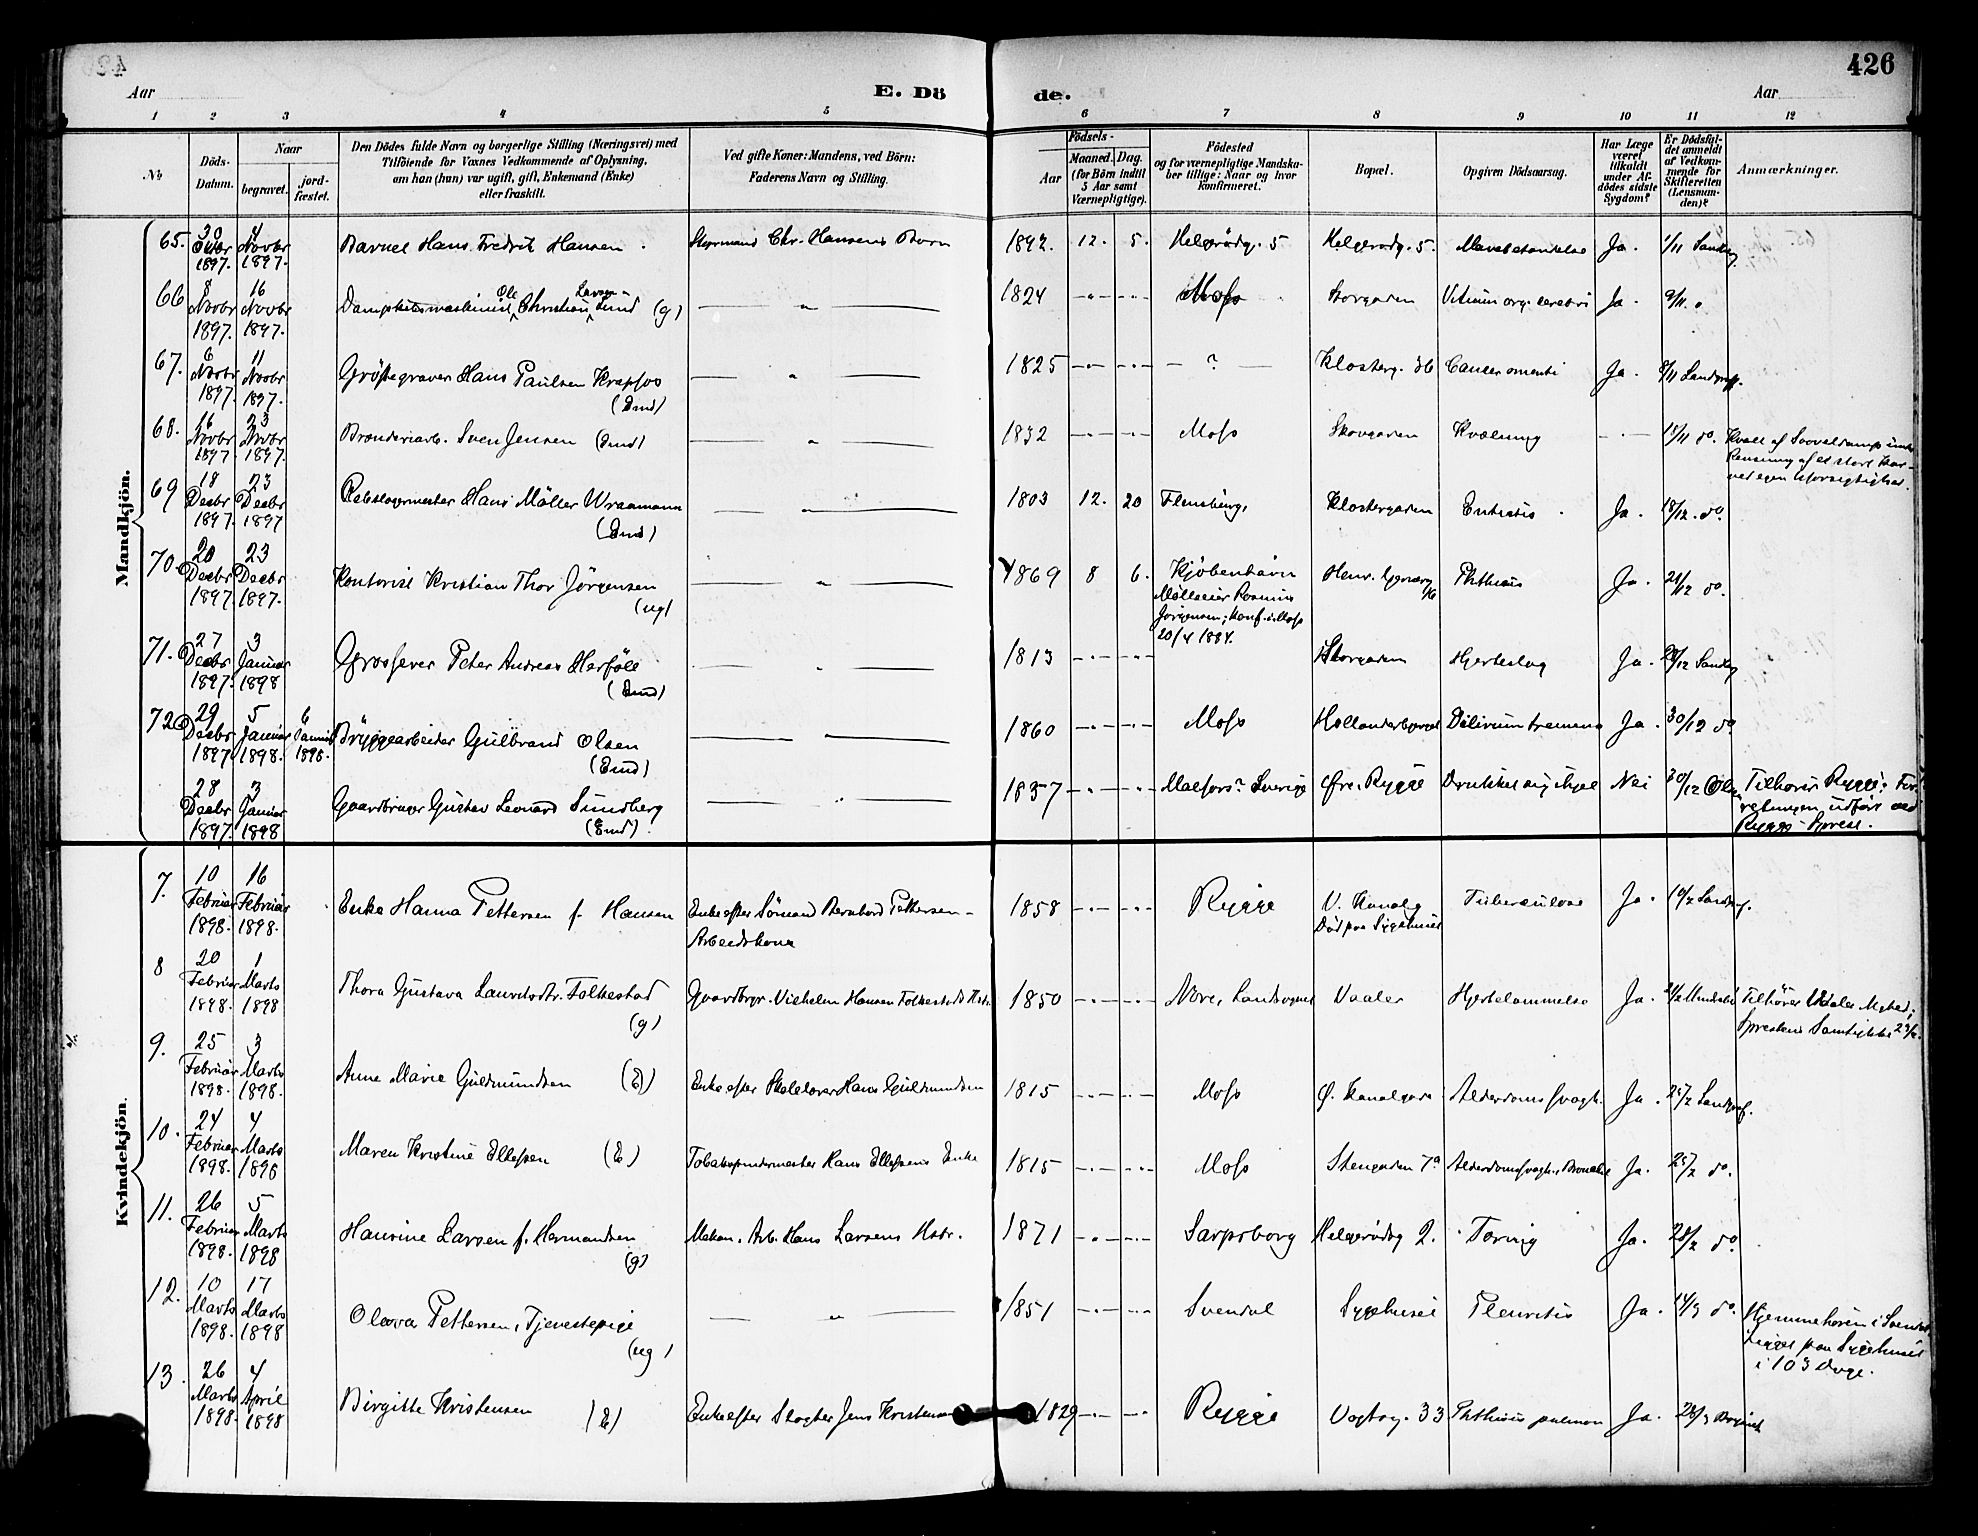 426
Aar
E. Dö
de.
Aar
1 2 3 4 5 6 7 8 9 10 11 12
No
Döds-Datum.
Naar
begravet.
jord-fæstet.
Den Dödes fulde Navn og borgerlige Stilling (Næringsvei) med
Tilföiende for Voxnes Vedkommende af Oplysning,
om han (hun) var ugift, gift, Enkemand (Enke)
eller fraskilt.
Ved gifte Koner: Mandens, ved Börn:
Faderens Navn og Stilling.
Födsels-
Aar
Maaned. Dag.
(for Börn indtil
5 Aar samt
Værnepligtige).
Födested
og for værnepligtige Mandska-
ber tillige: Naar og hvor
konfirmeret.
Bopæl.
Opgiven Dödsaarsag.
Har Læge
været
tilkaldt
under Af-
dödes sidste
Sygdom?
Er Dödsfal-
det anmeldt
af Vedkom-
mende for
Skifteretten
(Lensman-
den)?
Anmærkninger.
Mandkjön.
65. 30 Octbr 1897. 4 Novbr 1897. Barnet Hans Fredrik Hansen. Styrmand Chr. Hansens Barn 1892. 12. 5. Helgerödg. 5 Helgerödg. 5. Ja. 1/11
66 8 Novbr 1897. 16 Novbr 1897. Ole Christian Larsen Lund (g) — " — 1824 Moss Storgaden Vitium org. cerebri Ja. 9/11
67. 6 Novbr 1897. 11 Novbr 1897. Gröftegraver Hans Paulsen Krapfos (Emd) — " — 1825 — ? — Klosterg. 36 Cancer omenti Ja. 8/11
68. 16 Novbr 1897 23 Novbr 1897. Brænderiarb. Sven Jensen (Emd) — " — 1832 Moss Skovgaden Kvælning 18/11 do.
69 18 Decbr 1897. 23 Decbr 1897 Rebslagermester Hans Möller Wraamann (Emd) — " — 1803 12. 20 Flensburg. Klostergaden Enteritis Ja. 18/12. do.
70. 20 Decbr 1897. 23 Decbr 1897. Kontorist Kristian Thor Jörgensen (ug) — " — 1869 8 6. Kjöbenhavn
Jörgensen; konf. i Moss
20/4 1884. Phthisis Ja. 21/12 do.
71. 27 Decbr 1897. 3 Januar 1898 Grosserer Peter Andreas Herföll (Emd) — " — 1813 Storgaden Hjerteslag Ja. 28/12
72 29 Decbr 1897 5 Januar 1898. 6 Januar 1898. Bryggearbeider Gulbrand Olsen (Emd) — " — 1860 Moss Delirium tremens Ja. 30/12 do
28 Decbr 1897. 3 Januar 1898 Gaardbruger Gustav Leonard Sundberg (Emd). — " — 1837 Sverige Øvre Rygge Drukket sig ihjel Nei 30/12 Tilhører Rygge;
Kvindekjön.
7. 10 Februar 1898. 16 Februar 1898. Enke Hanna Pettersen f. Hansen Enke efter Sömand Bernhard Pettersen -
Arbeidskone 1858 Rygge V. Kanalg
Död paa Sygehuset Tuberculose Ja. 10/2
8 20 Februar 1898. 1 Marts 1898 Thora Gustava Lauritsdtr. Folkestad (g) Gaardbrgr. Vilhelm Hansen Folkestads Hstr. 1850 Vaaler Hjertelammelse Ja. Tilhörer Vaaler
9. 25 Februar 1898. 3 Marts 1898. Anne Marie Guldmundsen (E) Enke efter Hans Guldmundsen 1815 Moss Ø. Kanalgade Alderdomssvagh. Ja. 25/2
10. 24 Februar 1898. 4 Marts 1898 Maren Kristine Ellefsen (E.) Hans Ellefsens Enke 1815 Moss Stengaden 7a Ja. 25/2 do.
11. 26 Februar 1898. 5 Marts 1898 Haurine Larsen f. Hermandsen (g) Mekan. Arb. Hans Larsens Hstr. 1871 Sarpsborg Helgerödg 2. Tæring Ja. 28/2 do.
12. 10 Marts 1898. 17 Marts 1898 Oleava Pettersen, Tjenestepige (ug) — " — 1851 Svendal Sygehuset Pleuritis Ja. 14/3 do. Hjemmehören i Svendal
Ligget paa Sygehuset
i 103 Dage.
13. 26 Marts 1898. 4 April 1898 Birgitte Kristensen (E) Enke efter Slagter Jens Kristensen 1829 Rygge Vogtsg. 33 Phthisis pulmon Ja. 28/3